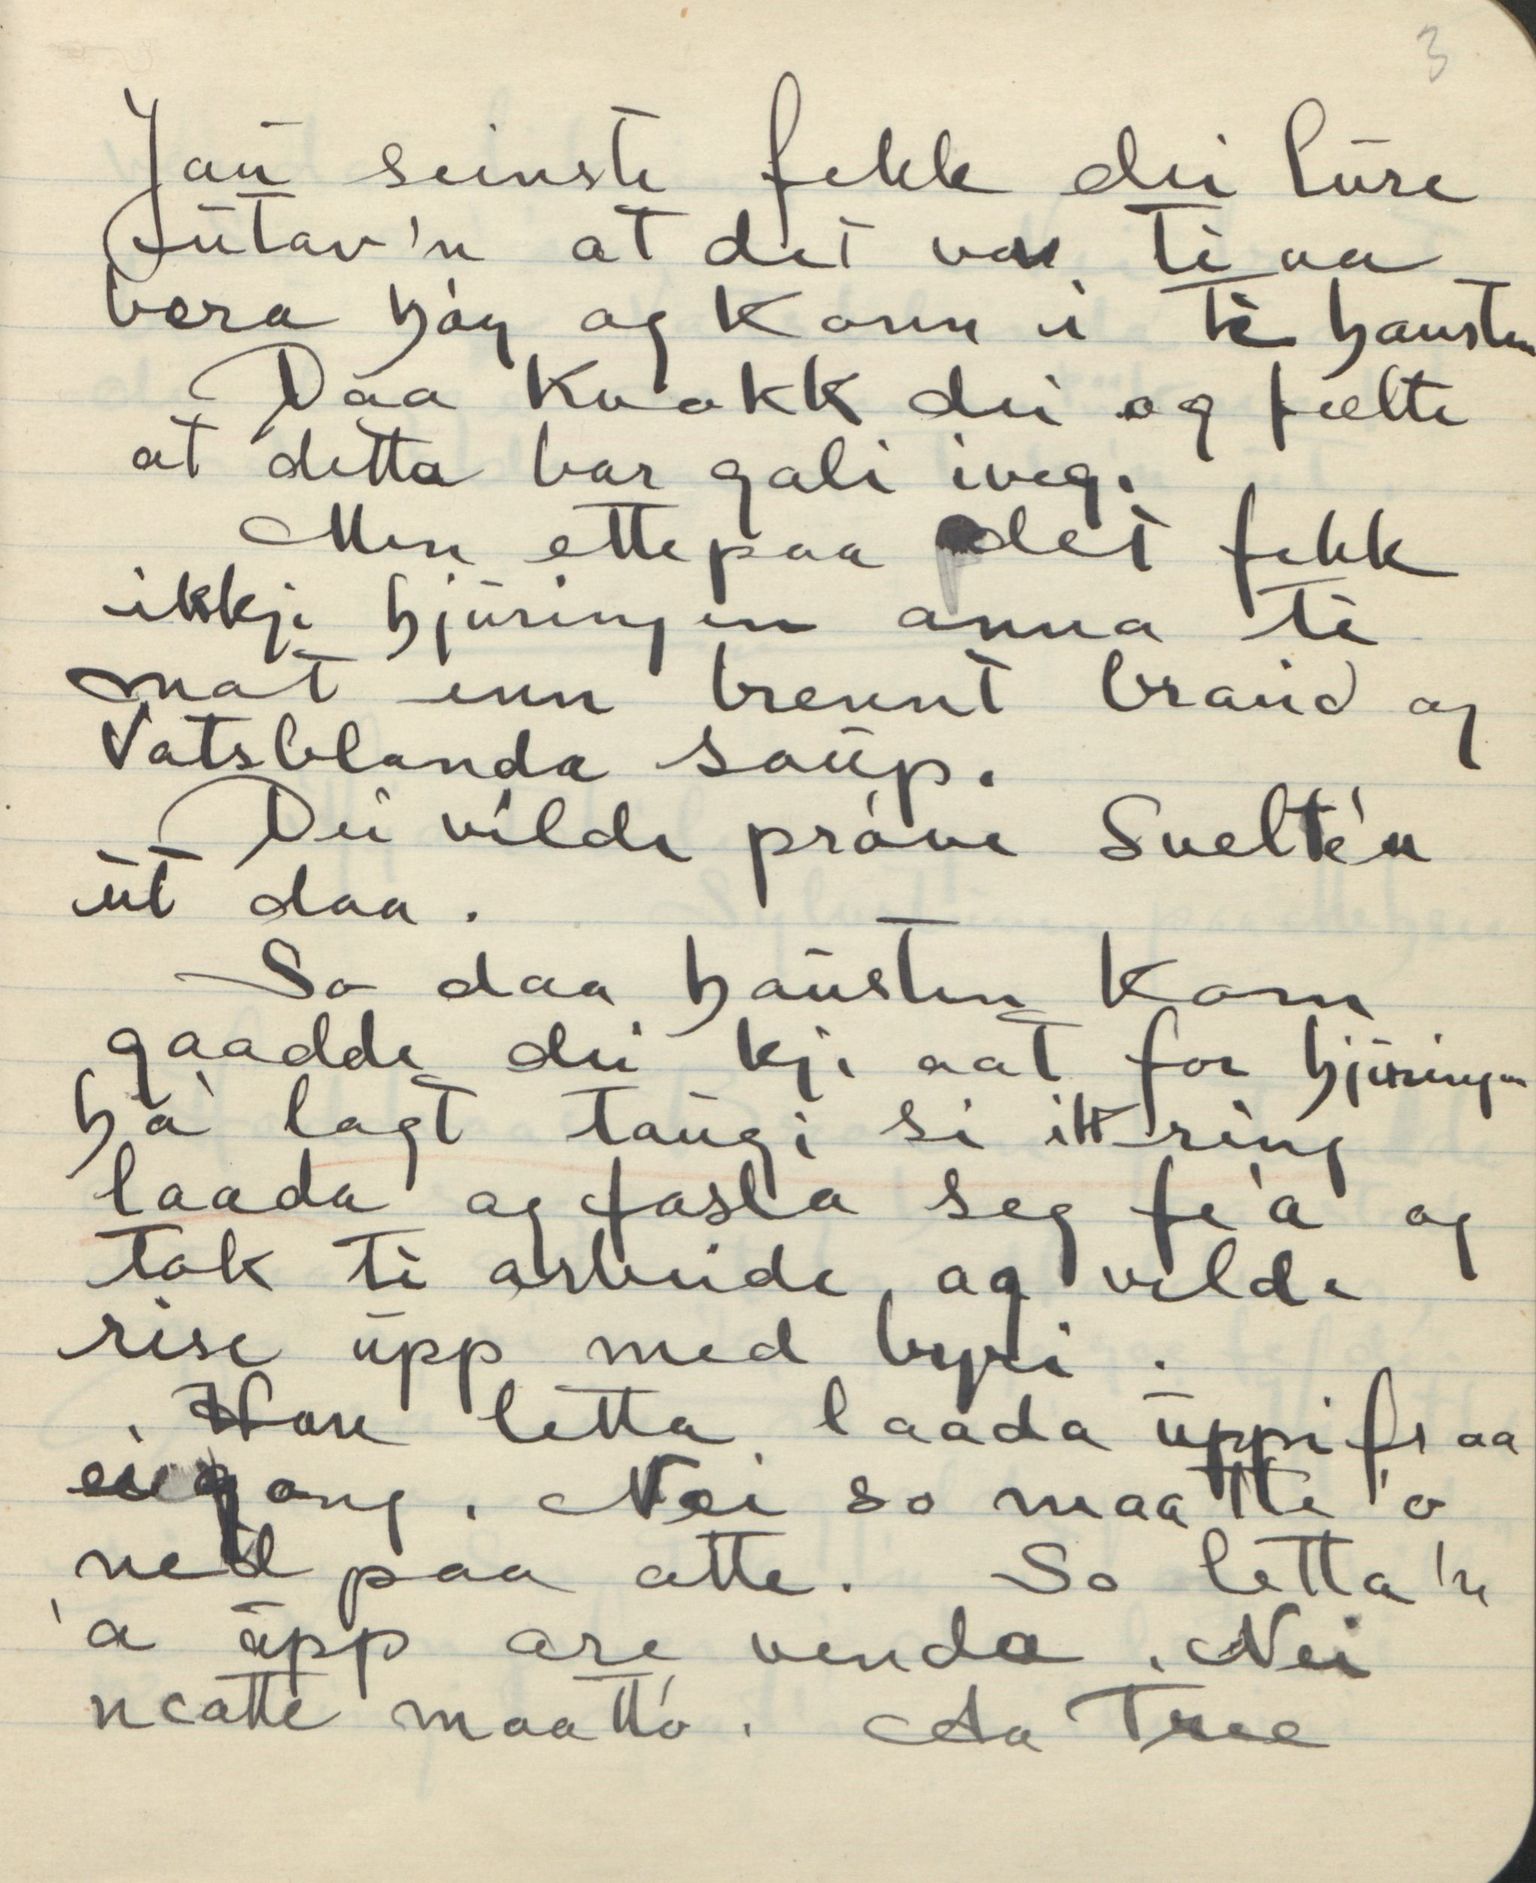 3
Jau seinste fekk dei lure
utav'n at det var ti aa
bera høy og korn i te hausten
Daa kvakk dei og fælte
at detta bar gali iveg.
Men ettepaa det fekk
ikkji hjuringen anna ti
mat enn brennt braud og
Vatsblanda saup.
Dei vilde prøve Svelte'n
ut daa.
So daa hausten kom
gaadde dei kji aat for hjuringen
ha' lagt taugi si ikring
laada og fasla seg fe'a og
tok ti arbeide, og vilde
rise upp med byri.
Han letta laada uppifraa
eigong. Nei so maatte 'o
ned paa atte. So letta 'n
'a upp are venda. Nei
neatte maatt'o. Aa Tree